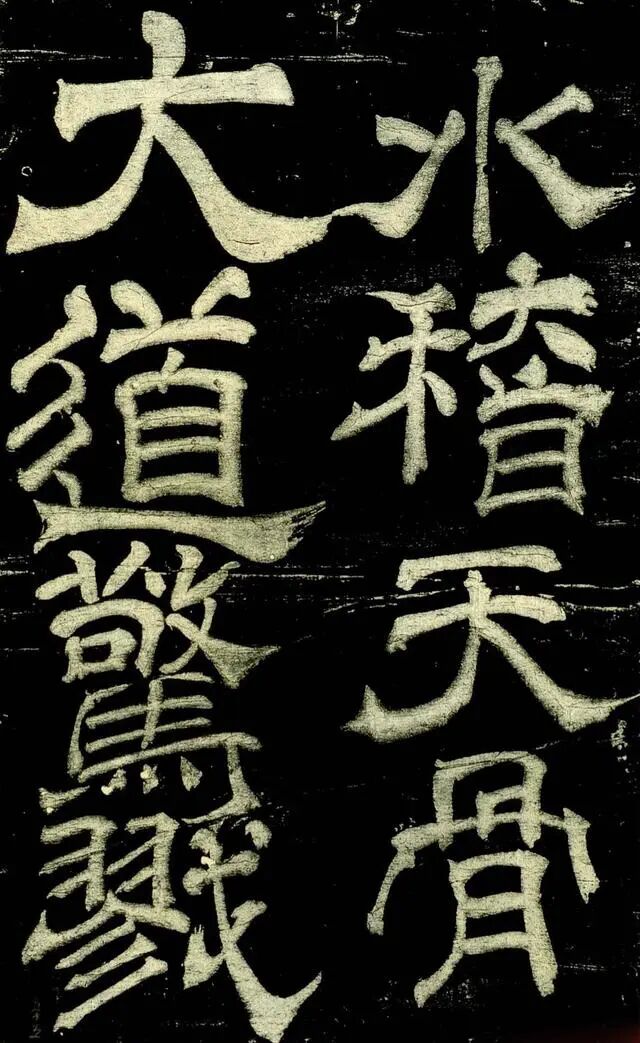 水稽天骨
大道驚戮